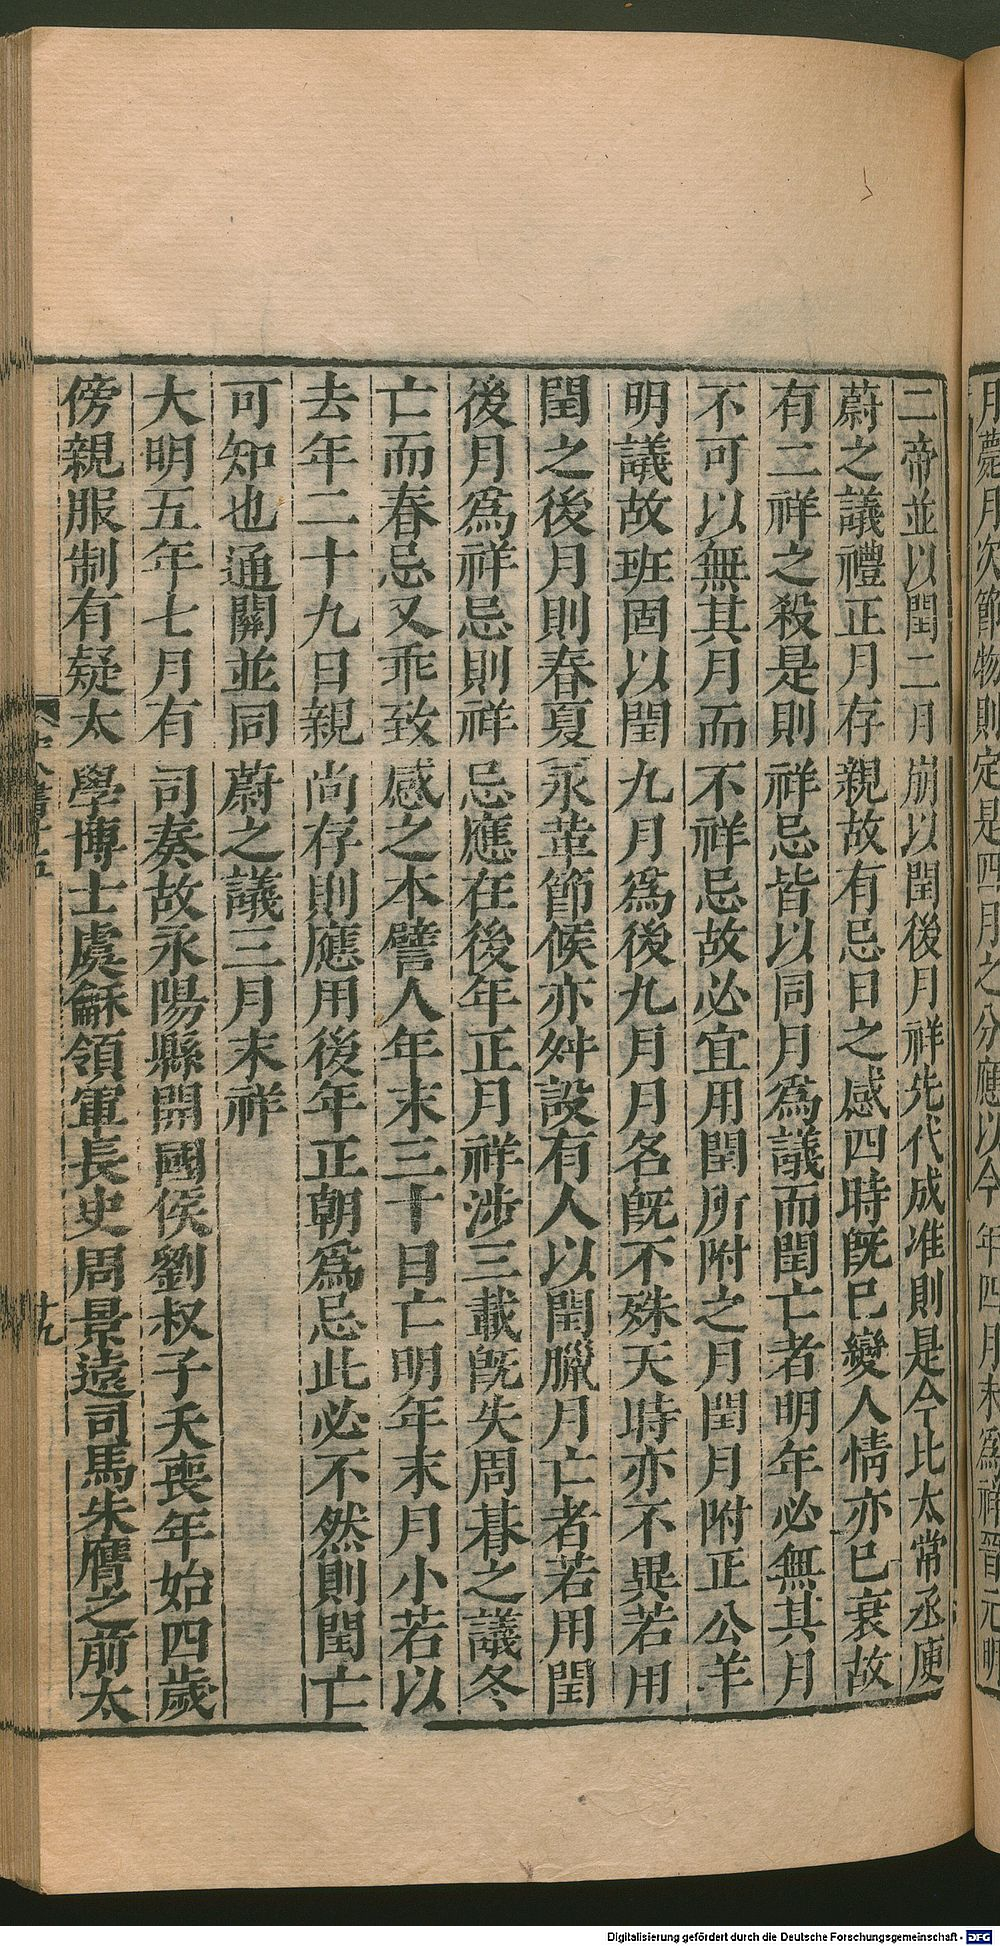 月薨月次節物則定是四月之分應以今年四月末爲祥晉元明
二帝並以閏二月崩以閏後月祥先代成准則是今比太常丞庾
蔚之議禮正月存親故有忌日之感四時旣已變人情亦已衰故
有二祥之殺是則祥忌皆以同月爲議而閏亡者明年必無其月
不可以無其月而不祥忌故必宜用閏所附之月閏月附正公羊
明議故班固以閏九月爲後九月月名旣不殊天時亦不異若用
閏之後月則春夏永革節候亦舛設有人以閏臘月亡者若用閏
後月爲祥忌則祥忌應在後年正月祥涉三載旣失周朞之議冬
亡而春忌又乖致感之本譬人年末三十日亡明年末月小若以
去年二十九日親尚存則應用後年正朝爲忌此必不然則閏亡
可知也通關並同蔚之議三月末祥
大明五年七月有司奏故永陽縣開國侯劉叔子夭喪年始四歲
傍親服制有疑太學博士虞龢領軍長史周景遠司馬朱膺之前太
十九
Digitalisierung gefördert durch die Deutsche Forschungsgemeinschaft - DFG